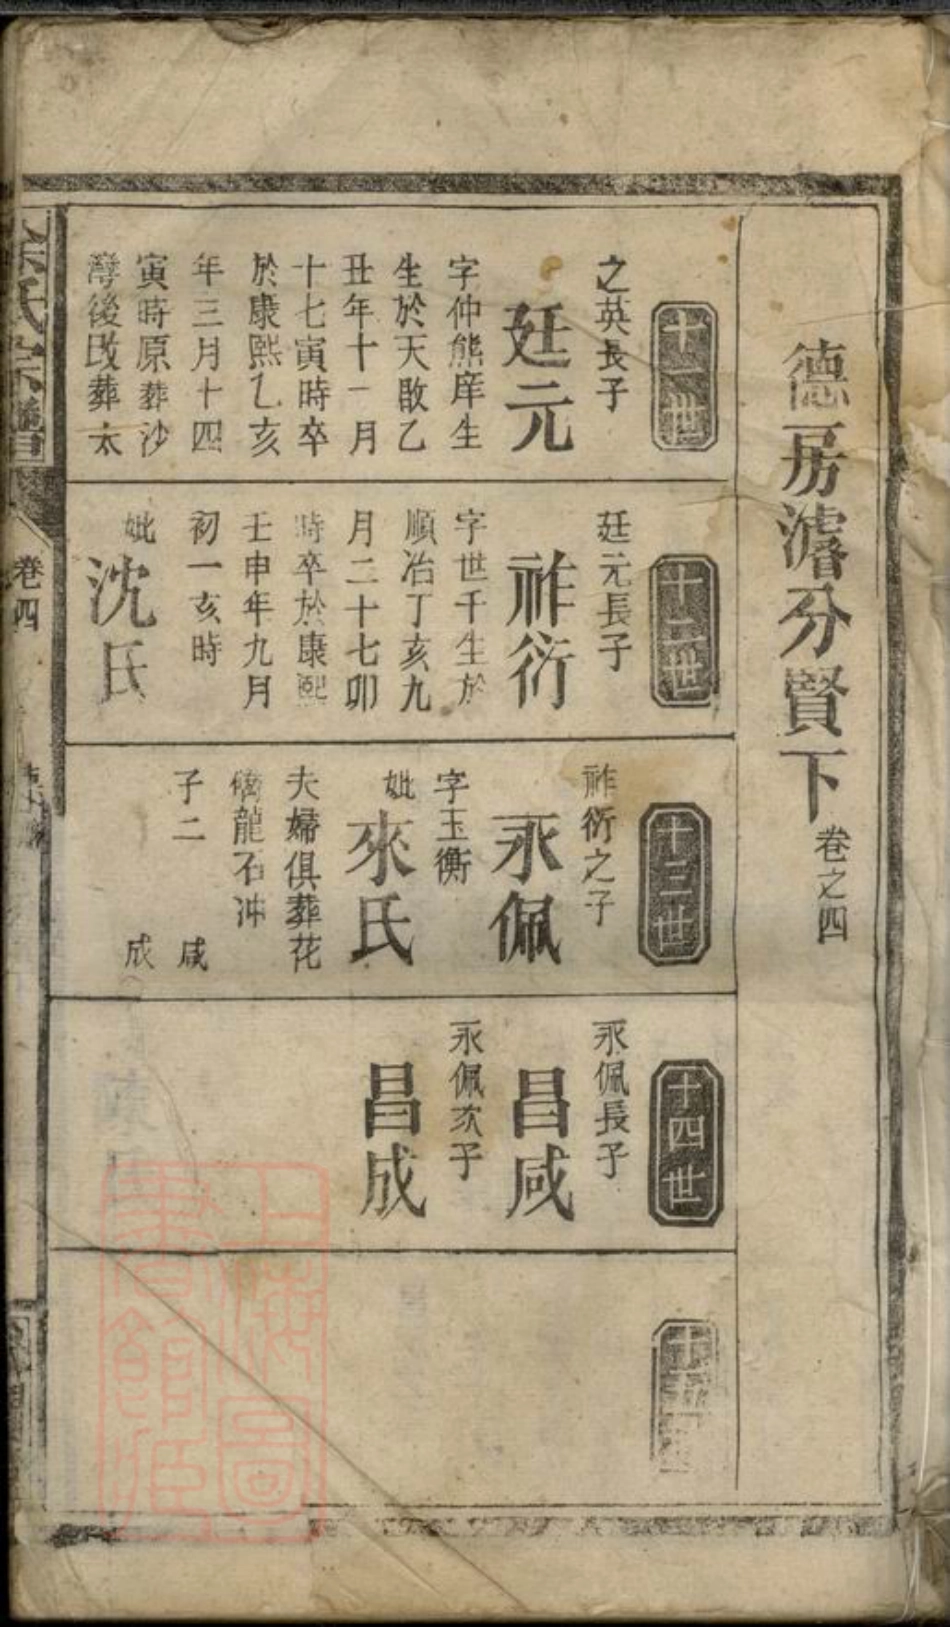 德房濬分賢下 卷之四
十一世
之英長子
廷元
字仲熊庠生
生於天啟乙
丑年十一月
十七寅時卒
於康熙乙亥
年三月十四
寅時原葬沙
灣後改葬太
十二世
廷元長子
祚衍
字世千生於
順治丁亥九
月二十七卯
時卒於康熙
壬申年九月
初一亥時
妣
沈氏
十三世
祚衍之子
永佩
字玉衡
妣
來氏
夫婦俱葬花
龍石冲
子二 咸
成
十四世
永佩長子
昌咸
永佩次子
昌成
十五世
氏宗譜
卷四
上海圖書館藏